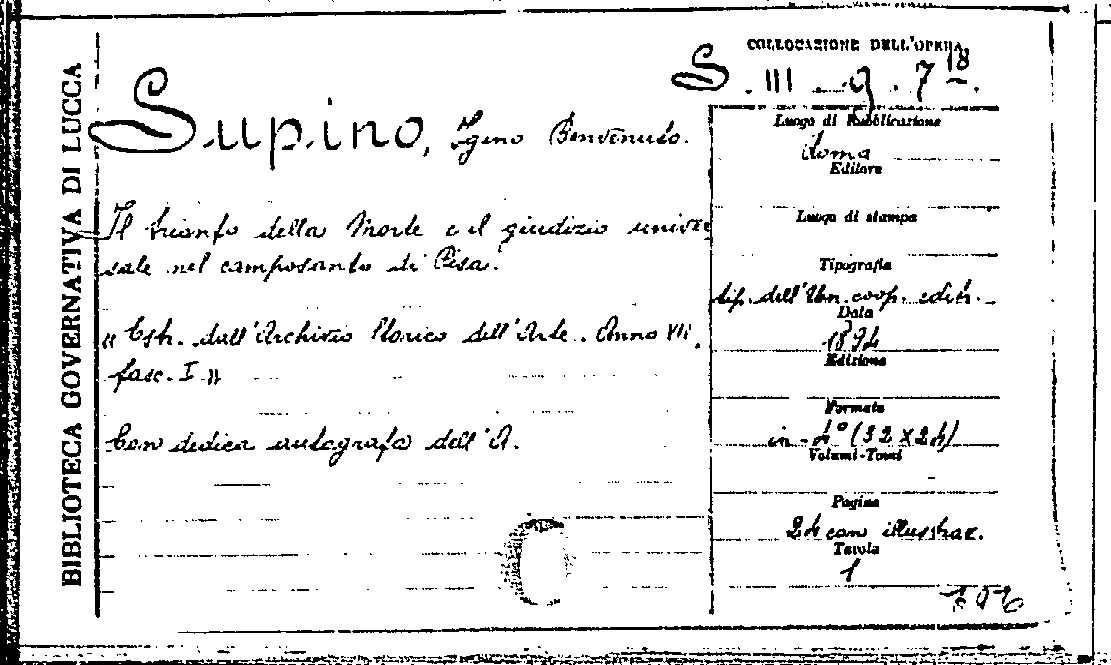 BIBLIOTECA GOVERNATIVA DI LUCCA
COLLOCAZIONE DELL'OPERA
S. III. g. 7 18
Supino, Igino Benvenuto.
Il trionfo della Morte e il giudizio univer
sale nel camposanto di Pisa.
"Estr. dall'Archivio Storico dell'Arte. Anno VII,
fasc. I"
Con dedica autografa dell'A.
Luogo di Pubblicazione
Roma
Editore
Luogo di stampa
Tipografia
tip. dell'Un. coop. edit.
Data
1894
Edizione
Formato
in-4° (32 x 24)
Volumi-Tomi
Pagine
24 con illustraz.
Tavole
1